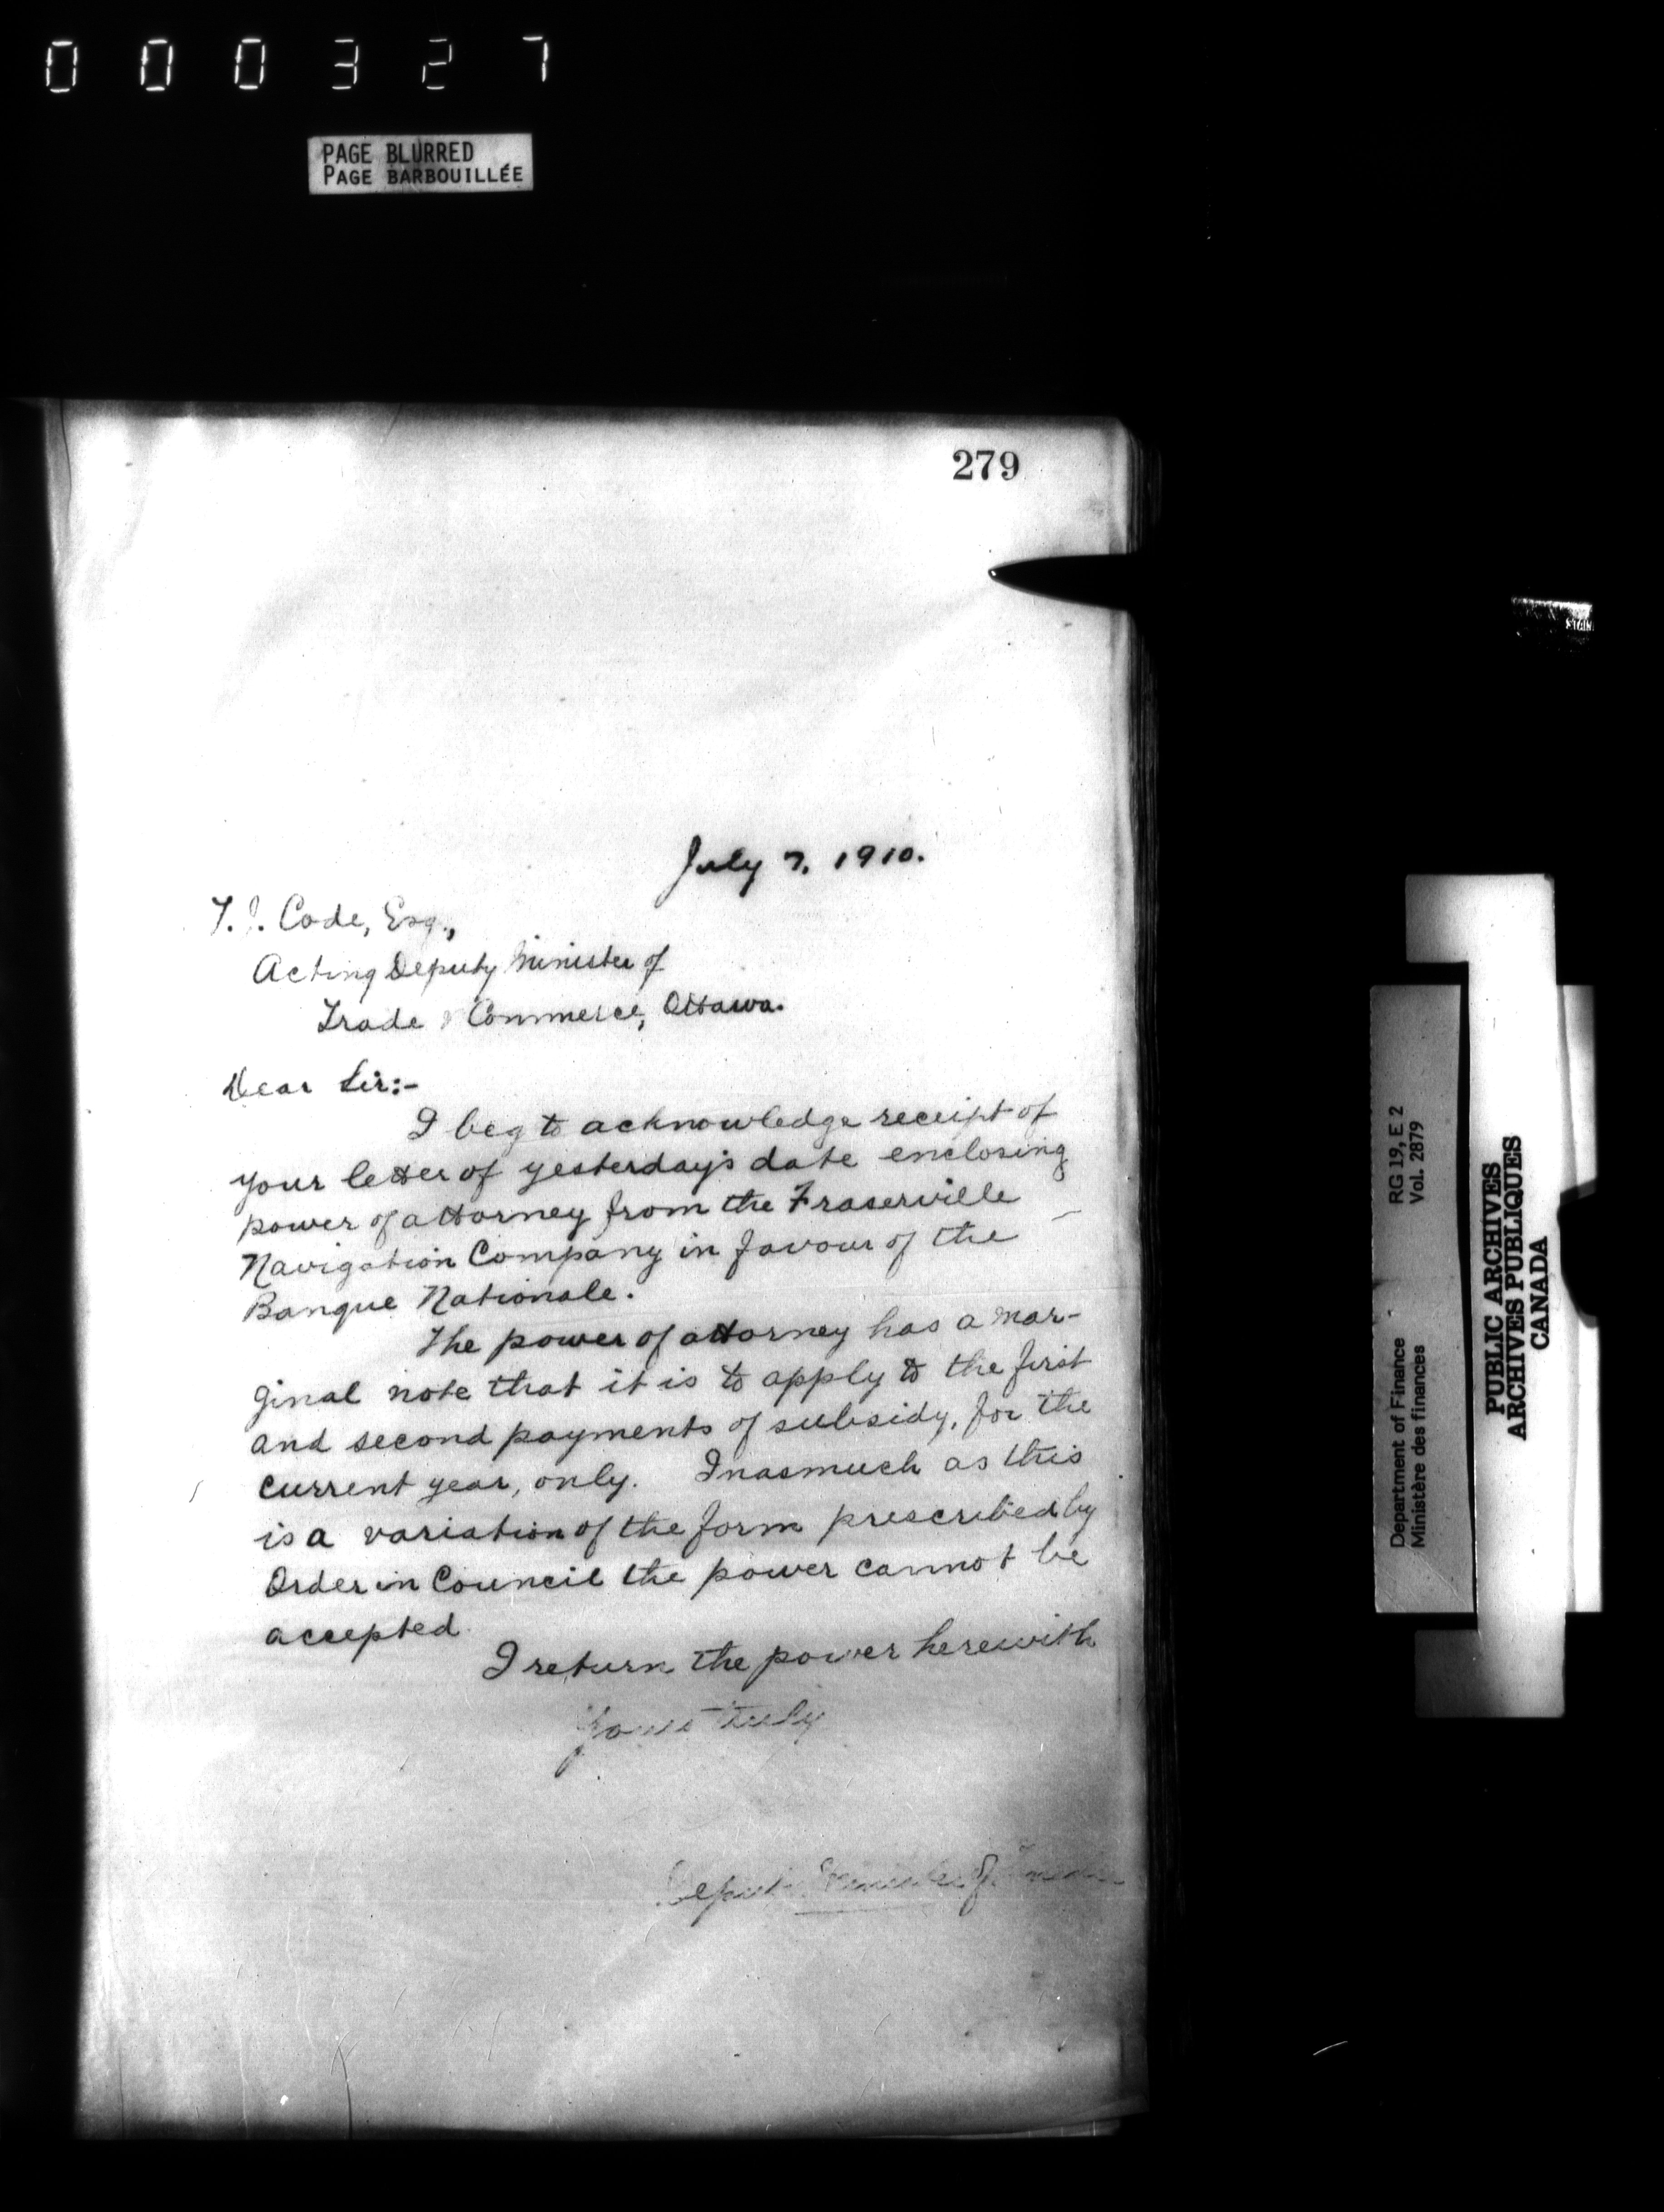 000327
PAGE BLURRED
PAGE BARBOUILLÉE
279
July 7, 1910.
T. J. Code, Esq.,
Acting Deputy Minister of
Trade & Commerce, Ottawa.
Dear Sir:-
I beg to acknowledge receipt of
your letter of yesterday's date enclosing
power of attorney from the Fraserville
Navigation Company in favour of the
Banque Nationale.
The power of attorney has a mar-
ginal note that it is to apply to the first
and second payments of subsidy, for the
current year, only. Inasmuch as this
is a variation of the form prescribed by
Order in Council the power cannot be
accepted.
I return the power herewith
Yours truly
Deputy Minister of Finance
Department of Finance
Ministère des finances
RG 19, E 2
Vol. 2879
PUBLIC ARCHIVES
ARCHIVES PUBLIQUES
CANADA